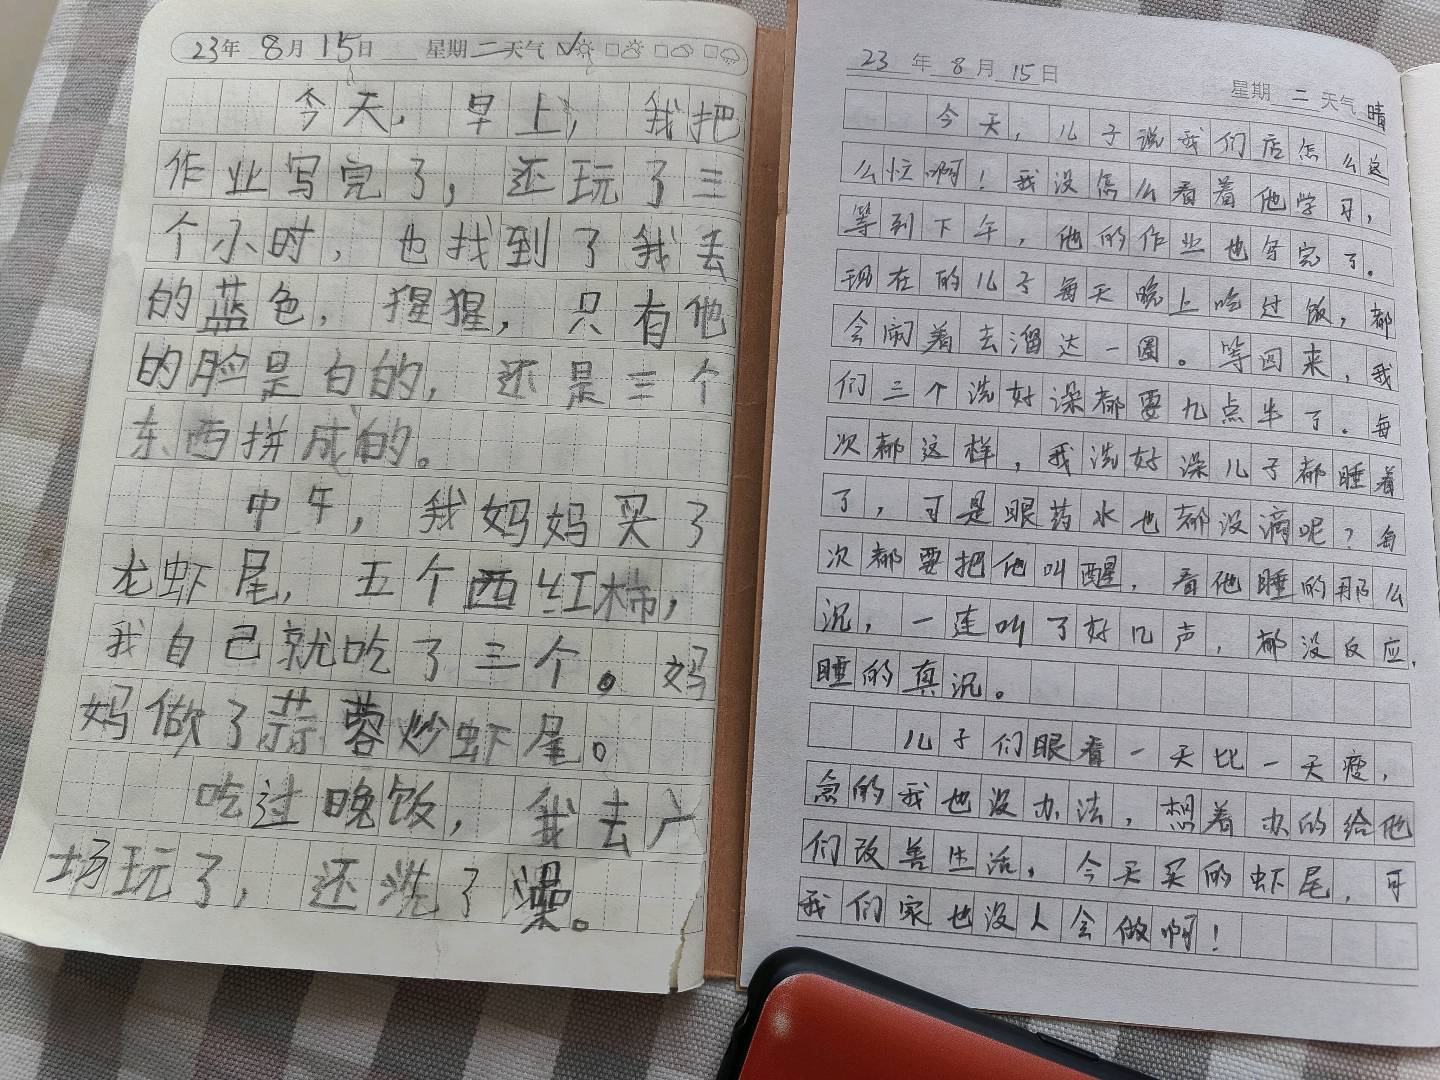 23年 8月 15日 星期二天气
今天，早上，我把
作业写完了，还玩了三
个小时，也找到了我去
的蓝色，猩猩，只有他
的脸是白的，还是三个
东西拼成的。
中午，我妈妈买了
龙虾尾，五个西红柿，
我自己就吃了三个。妈
妈做了蒜蓉炒虾尾。
吃过晚饭，我去广
场玩了，还洗了澡。
23年 8月 15日
星期 二 天气 晴
今天，儿子说我们店怎么这
么忙啊！我没怎么看着他学习，
等到下午，他的作业也写完了。
现在的儿子每天晚上吃过饭，都
会闹着去溜达一圈。等回来，我
们三个洗好澡都要九点半了。每
次都这样，我洗好澡儿子都睡着
了，可是眼药水也都没滴呢？每
次都要把他叫醒，看他睡的那么
沉，一连叫了好几声，都没反应，
睡的真沉。
儿子们眼看一天比一天瘦，
急的我也没办法，想着办的给他
们改善生活，今天买的虾尾，可
我们家也没人会做啊！